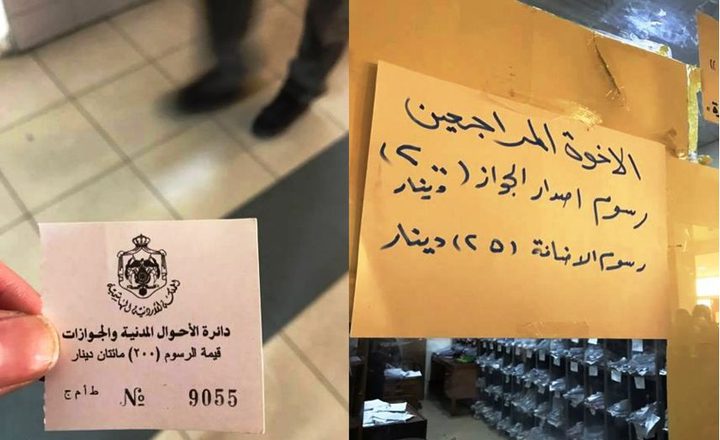 المملكة الأردنية الهاشمية
دائرة الأحوال المدنية والجوازات
قيمة الرسوم (٢٠٠) مائتان دينار
ط أ م ج № 9055
الاخوة المراجعين
رسوم اصدار الجواز (٢٠٠) دينار
رسوم الاضافة (٢٥) دينار